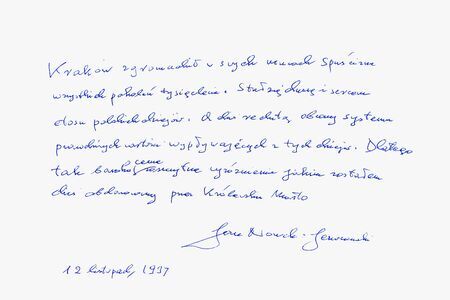 Kraków zgromadził w swych murach spuściznę
wszystkich pokoleń tysiąclecia. Stał się chlubą i sercem
dziejów. A dziś redutą obrony systemu
prawdziwych wartości wypływających z tych dziejów. Dlatego
tak bardzo cenię wyróżnienie jakim zostałem
dziś obdarowany przez Królewskie Miasto
Jan Nowak-Jeziorański
12 listopad, 1997